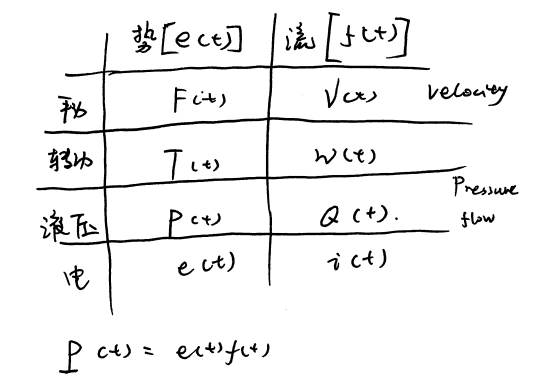 势[e(t)] 流[f(t)]
平动 F(t) V(t) velocity
转动 T(t) w(t)
液压 P(t) Q(t). Pressure
flow
电 e(t) i(t)
P(t) = e(t)f(t)